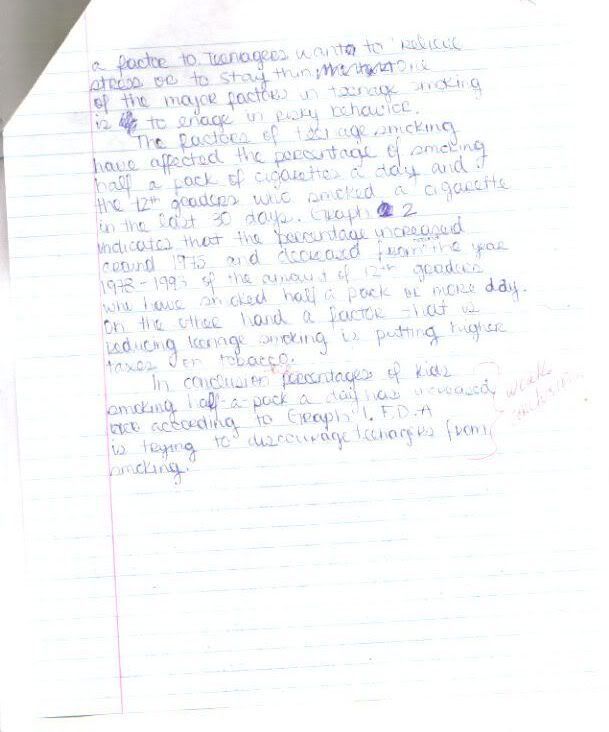 a factor to Teenagers want to relieve
stress or to stay thin One
of the major factors in teenage smoking
is to enage in risky behavior.
The factors of teen age smoking
have affected the percentage of smoking
half a pack of cigarettes a day and
the 12th graders who smoked a cigarette
in the last 30 days. Graph 2
indicates that the percentage increased
around 1975 and decreased from the year
1978-1993 of the amount of 12th graders
who have smoked half a pack or more day.
On the other hand a factor that is
reducing teenage smoking is putting higher
taxes on tobacco.
In conclusion percentages of kids
smoking half-a-pack a day has increased
according to Graph 1. F.D.A
is trying to discourage teenagers from
smoking.
weak
conclusion...